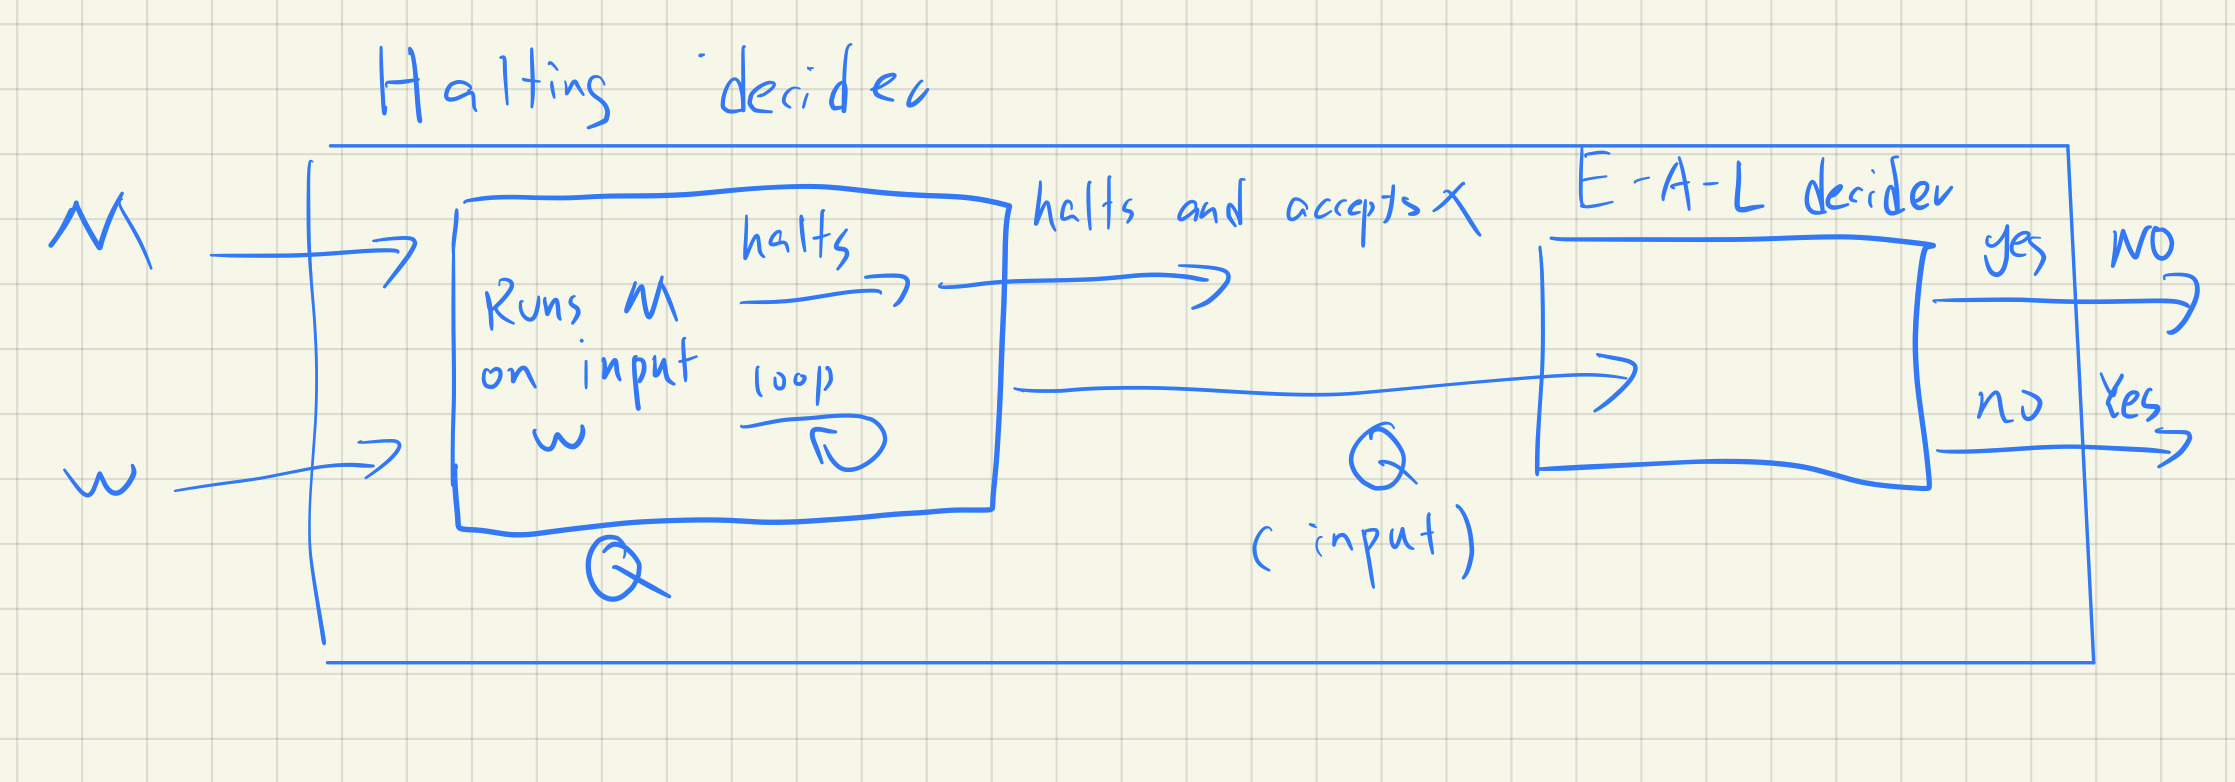 Halting decider
M
w
Runs M
on input
w
halts
loop
Q
halts and accepts X
Q
(input)
E-A-L decider
yes NO
no Yes